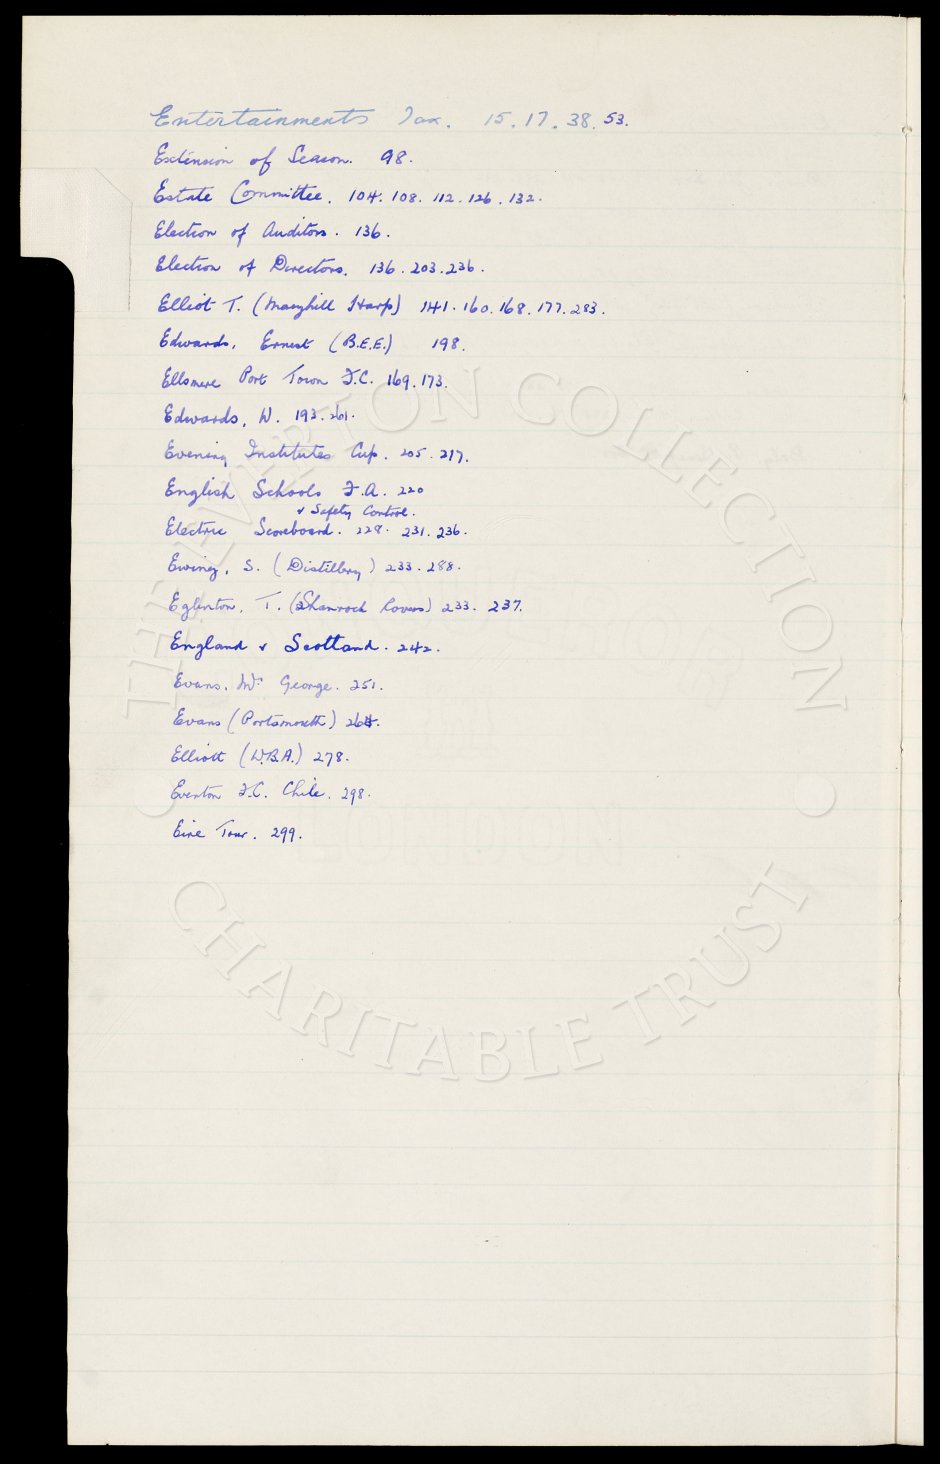 Entertainments Tax. 15. 17. 38. 53.
Extension of Season. 98.
Estate Committee. 104. 108. 112. 126. 132.
Election of Auditors. 136.
Election of Directors. 136. 203. 236.
Elliot T. (Maryhill Harp) 141. 160. 168. 177. 283.
Edwards, Ernest (B.E.E.) 198.
Ellsmere Port Town F.C. 169. 173.
Edwards, W. 193. 261.
Evening Institutes Cup. 205. 217.
English Schools F.A. 220
& Safety Control.
Electric Scoreboard. 228. 231. 236.
Ewing, S. (Distillery) 233. 288.
Eglinton, T. (Shamrock Rovers) 233. 237.
England v Scotland. 242.
Evans, Mr George. 251.
Evans (Portsmouth) 264.
Elliott (W.B.A.) 278.
Everton F.C. Chile. 298.
Eire Tour. 299.
THE EVERTON COLLECTION
CHARITABLE TRUST
LONDON